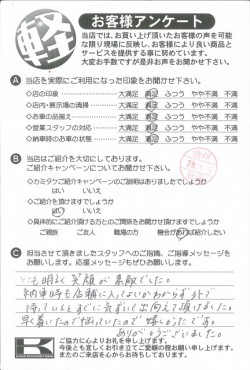 軽
お客様アンケート
当店では、お買い上げ頂いたお客様の声を可能
な限り現場に反映し、お客様により良い商品と
サービスを提供する事に努めています。
大変お手数ですが是非お声をお聞かせ下さい。
A 当店を実際にご利用になった印象をお聞かせ下さい。
◇店の印象 大満足 満足 ふつう やや不満 不満
◇店内・展示場の清掃 大満足 満足 ふつう やや不満 不満
◇お車の品揃え 大満足 満足 ふつう やや不満 不満
◇営業スタッフの対応 大満足 満足 ふつう やや不満 不満
◇納車時のお車の状態 大満足 満足 ふつう やや不満 不満
B 当店はご紹介を大切にしております。
ご紹介キャンペーンについてお聞かせ下さい。
◇カミタケご紹介キャンペーンのご説明はありましたでしょうか
はい いいえ
◇ご紹介を頂けますでしょうか
はい いいえ
◇具体的にご紹介頂ける方とのご関係をお聞かせ頂けますでしょうか
ご親族 ご友人 職場の方 機会があれば紹介したい
C 担当させて頂きましたスタッフへのご指摘、ご指導メッセージを
お願いします。応援メッセージもぜひお願いします。
いつも明るく笑顔が素敵でした。
納車時も店舗に入ってよいかわからず外で
待っていたらすぐに気づいて出向えて頂けました。
早く着いたので
ありがとうございました。
K
ご協力に心よりお礼を申し上げます。
今後とも宜しくお引き立てご愛顧の程お願い申し上げます。
またのご来店を心からお待ちしております。